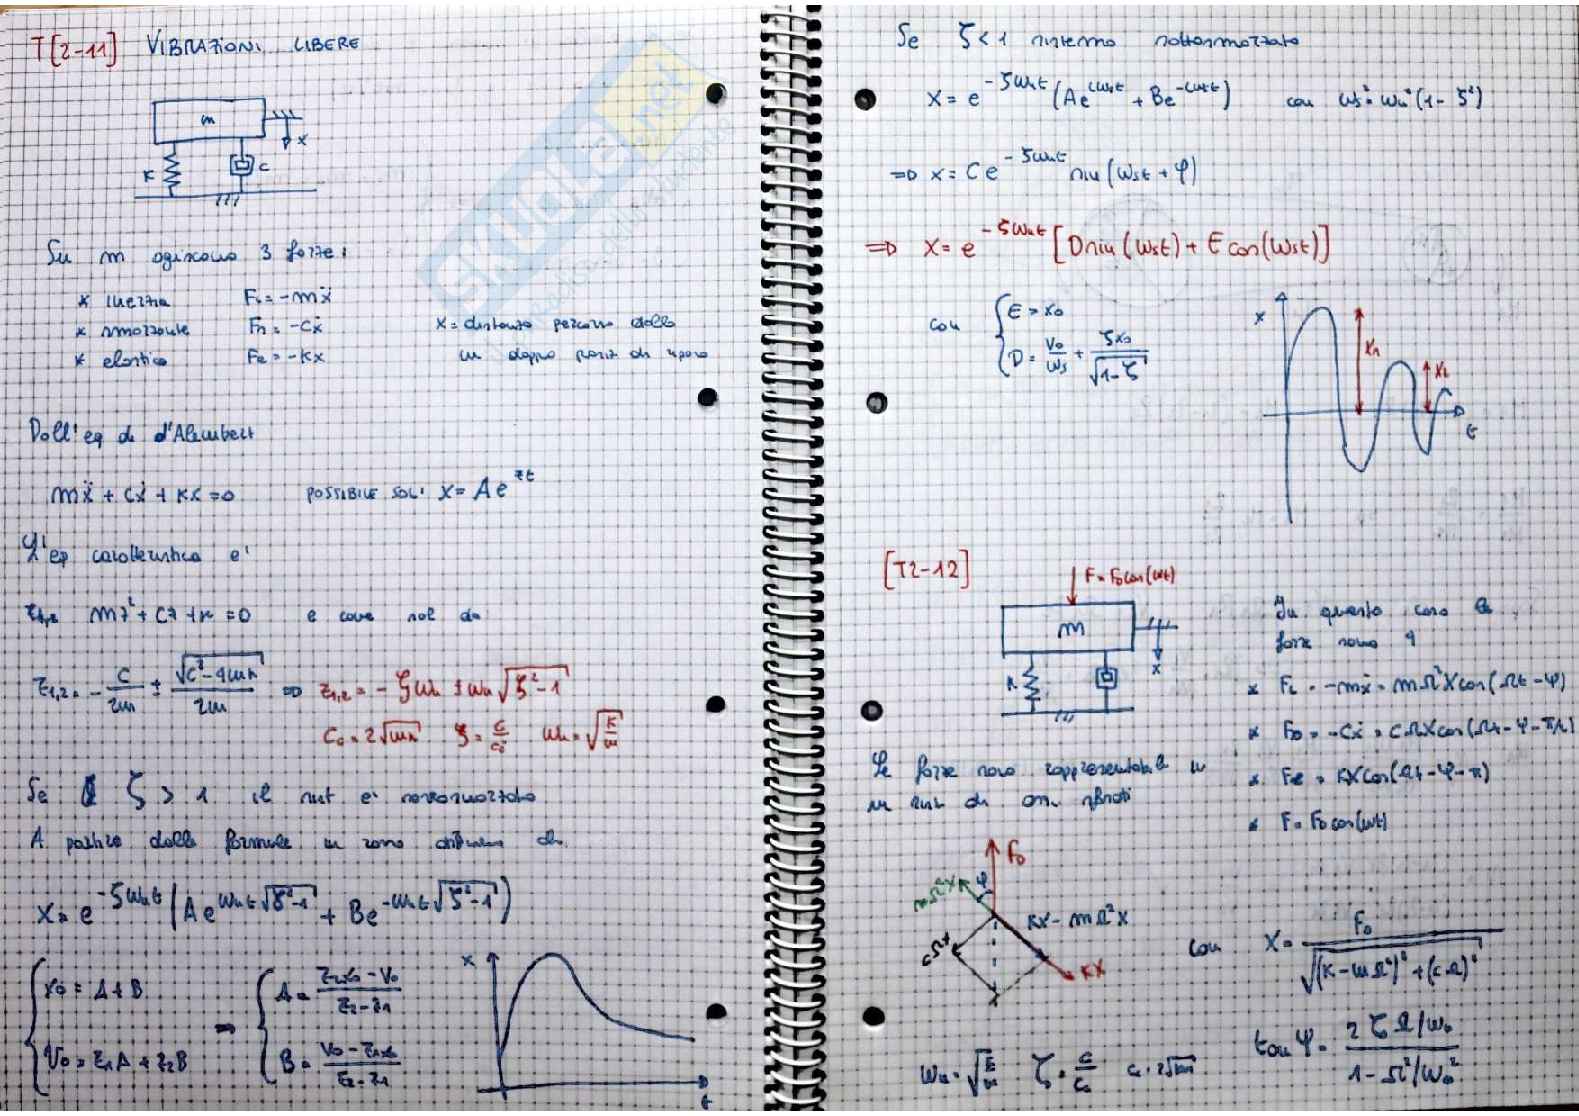 T[2-11] VIBRAZIONI LIBERE
m
x
K
c
Su m agiscono 3 forze:
* inerzia Fi = -mẍ
* smorzante Fn = -cẋ x = distanza percorsa dalla
* elastica Fe = -kx m dopo posiz di riposo
Dall'eq di d'Alembert
mẍ + cẋ + kx = 0 POSSIBILE SOL: x = A e^{zt}
L'eq caratteristica e'
z1,2 mz² + cz + k = 0 e come sol da
z1,2 = -c/2m ± √(c²-4mk)/2m => z1,2 = -ζωn ± ωn√(ζ²-1)
Cc = 2√(mk) ζ = c/cc ωn = √(k/m)
Se ζ > 1 il sist e' sovrasmorzato
A partire dalla formula in
x = e^{-ζωnt} (A e^{ωnt√(ζ²-1)} + B e^{-ωnt√(ζ²-1)})
{ x0 = A + B
v0 = z1A + z2B
=> { A = (z2x0 - v0)/(z2 - z1)
B = (v0 - z1x0)/(z2 - z1)
x
t
Se ζ < 1 sistema sottosmorzato
x = e^{-ζωnt} (A e^{iωst} + B e^{-iωst}) con ωs² = ωn²(1 - ζ²)
=> x = C e^{-ζωnt} sin(ωst + φ)
=> x = e^{-ζωnt} [D sin(ωst) + E cos(ωst)]
con { E = x0
D = v0/ωs + ζx0/√(1-ζ)
x
x1
x2
t
[T2-12]
F = F0 cos(ωt)
m
x
k
In questo caso le
forze sono 4
* Fi = -mẍ = mΩ²X cos(Ωt - φ)
* FD = -cẋ = cΩX cos(Ωt - φ - π/2)
* Fe = KX cos(Ωt - φ - π)
* F = F0 cos(ωt)
Le forze sono rappresentabili in
un sist di
F0
φ
mΩ²X
KX - mΩ²X
cΩX
KX
con X = F0/√((k - mΩ²)² + (cΩ)²)
ωn = √(k/m) ζ = c/cc cc = 2√(km)
tan φ = (2ζΩ/ω0)/(1 - Ω²/ω0²)
SKUOLA.net